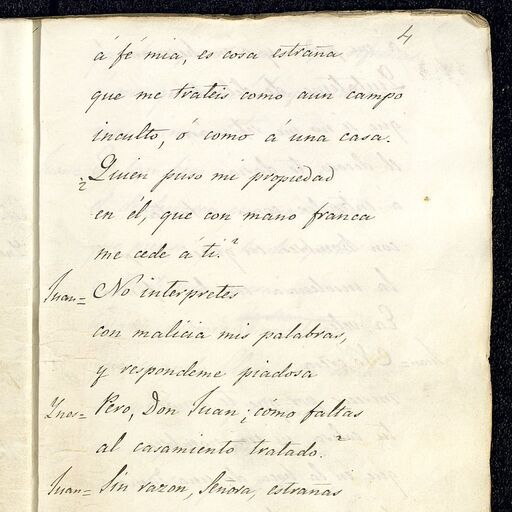 4
á fé mia, es cosa estraña
que me trateis como aun campo
inculto, ó como á una casa.
¿Quien puso mi propiedad
en él, que con mano franca
me cede á ti?
Juan= No interpretes
con malicia mis palabras,
y respondeme piadosa
Ynes= Pero, Don Juan; cómo faltas
al casamiento tratado?
Juan= Sin razon, Señora, estrañas